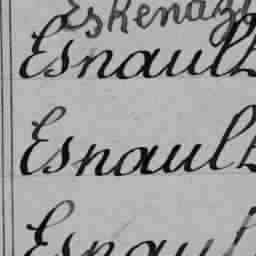 Eskenazi
Esnault
Esnault
Esnault